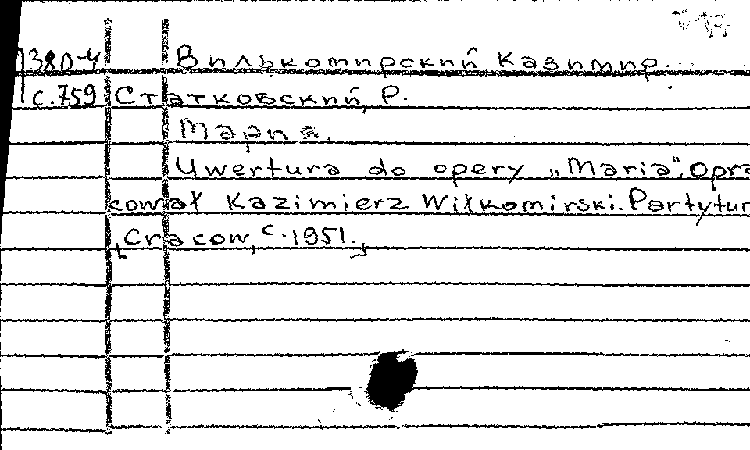 380-4 Вилькомирский Казимир...
с.759 Статковский, Р.
Мария.
Uwertura do opery „Maria". Opra
cował Kazimierz Wiłkomirski. Partytur
[Cracow, c. 1951.]